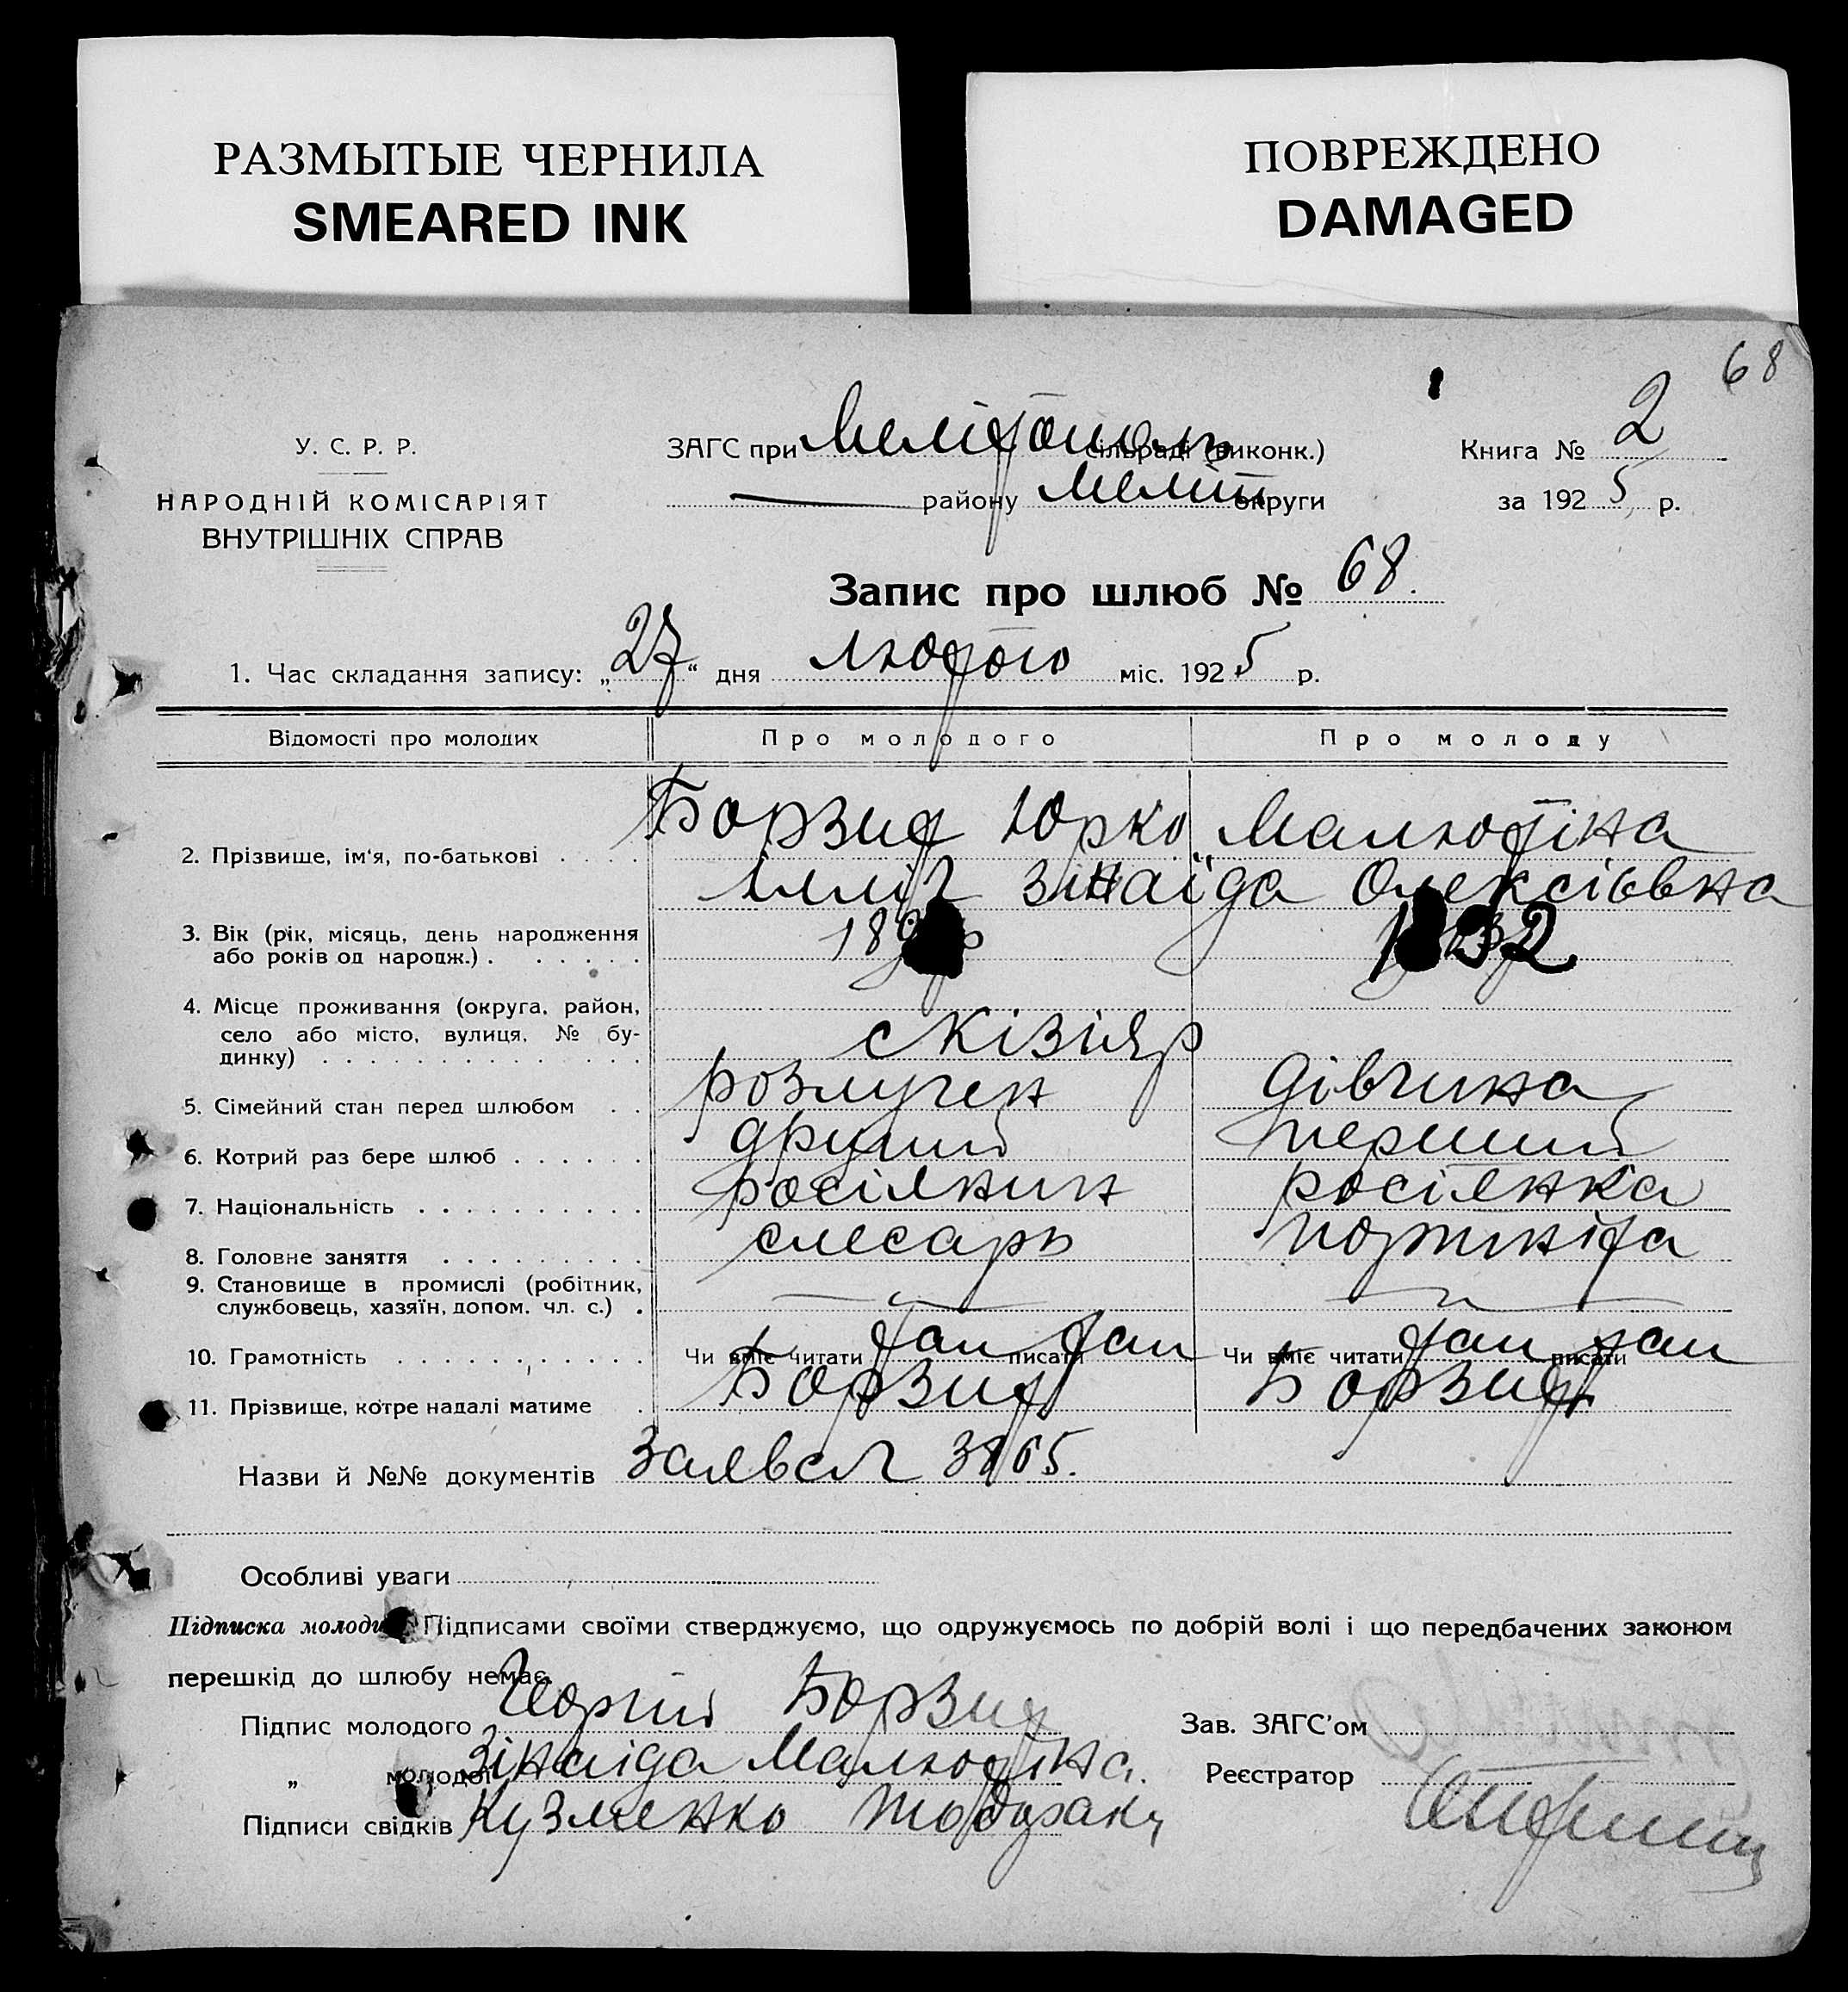 РАЗМЫТЫЕ ЧЕРНИЛА
SMEARED INK
ПОВРЕЖДЕНО
DAMAGED
68
У. С. Р. Р.
НАРОДНІЙ КОМІСАРІЯТ
ВНУТРІШНІХ СПРАВ
ЗАГС при Мелітополь сільраді (виконк.)
району Меліт округи
Книга № 2
за 1925 р.
Запис про шлюб № 68.
1. Час складання запису: „27“ дня лютого міс. 1925 р.
Відомості про молодих
Про молодого
Про молоду
2. Прізвище, ім'я, по-батькові . . . .
Борзид Юрко
Ілліч
Малютіна
Зінаїда Олексіївна
3. Вік (рік, місяць, день народження
або років од народж.) . . . . . .
189
4. Місце проживання (округа, район,
село або місто, вулиця, № бу-
динку) . . . . . . . . . . . . .
с Кізіяр
5. Сімейний стан перед шлюбом . .
розлучен
дівчина
6. Котрий раз бере шлюб . . . . . .
другий
перший
7. Національність . . . . . . . . . .
росіянин
росіянка
8. Головне заняття . . . . . . . . .
слесарь
портніха
9. Становище в промислі (робітник,
службовець, хазяїн, допом. чл. с.) .
10. Грамотність . . . . . . . . . . .
Чи вміє читати так писати так
Чи вміє читати так писати так
11. Прізвище, котре надалі матиме .
Борзид
Борзид
Назви й №№ документів 3865.
Особливі уваги
Підписка молодих Підписами своїми стверджуємо, що одружуємось по добрій волі і що передбачених законом
перешкід до шлюбу немає.
Підпис молодого Борзид
„ молодої Зінаїда Малютіна.
Підписи свідків Кузменко
Зав. ЗАГС'ом
Реєстратор